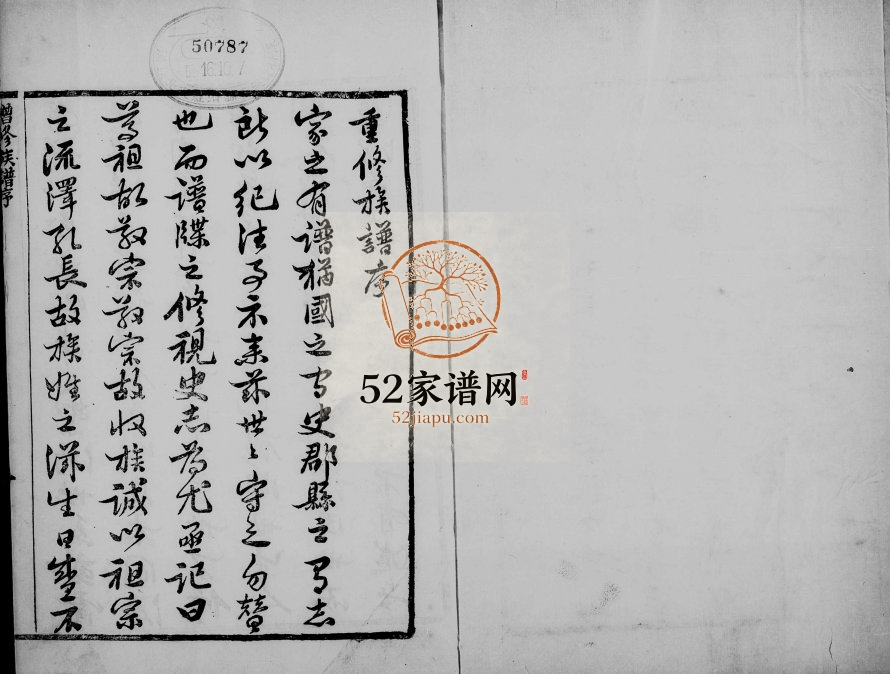 50787
16.10.7
重修族譜序
家之有譜猶國之有史郡縣之有志
所以紀往事示来茲世〻守之勿替
也而譜牒之修視史志為尤亟記曰
尊祖故敬宗敬宗故收族誠以祖宗
之流澤孔長故族姓之滋生日盛不
增修族譜序
52家谱网
52jiapu.com